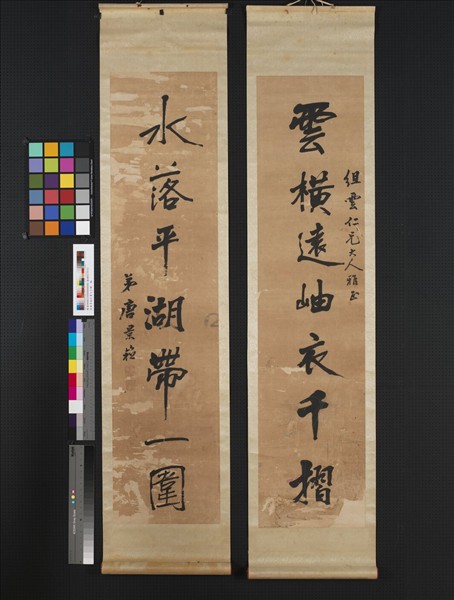 組雲仁兄大人雅正
雲橫遠岫衣千摺
水落平湖帶一圍
弟唐景崧